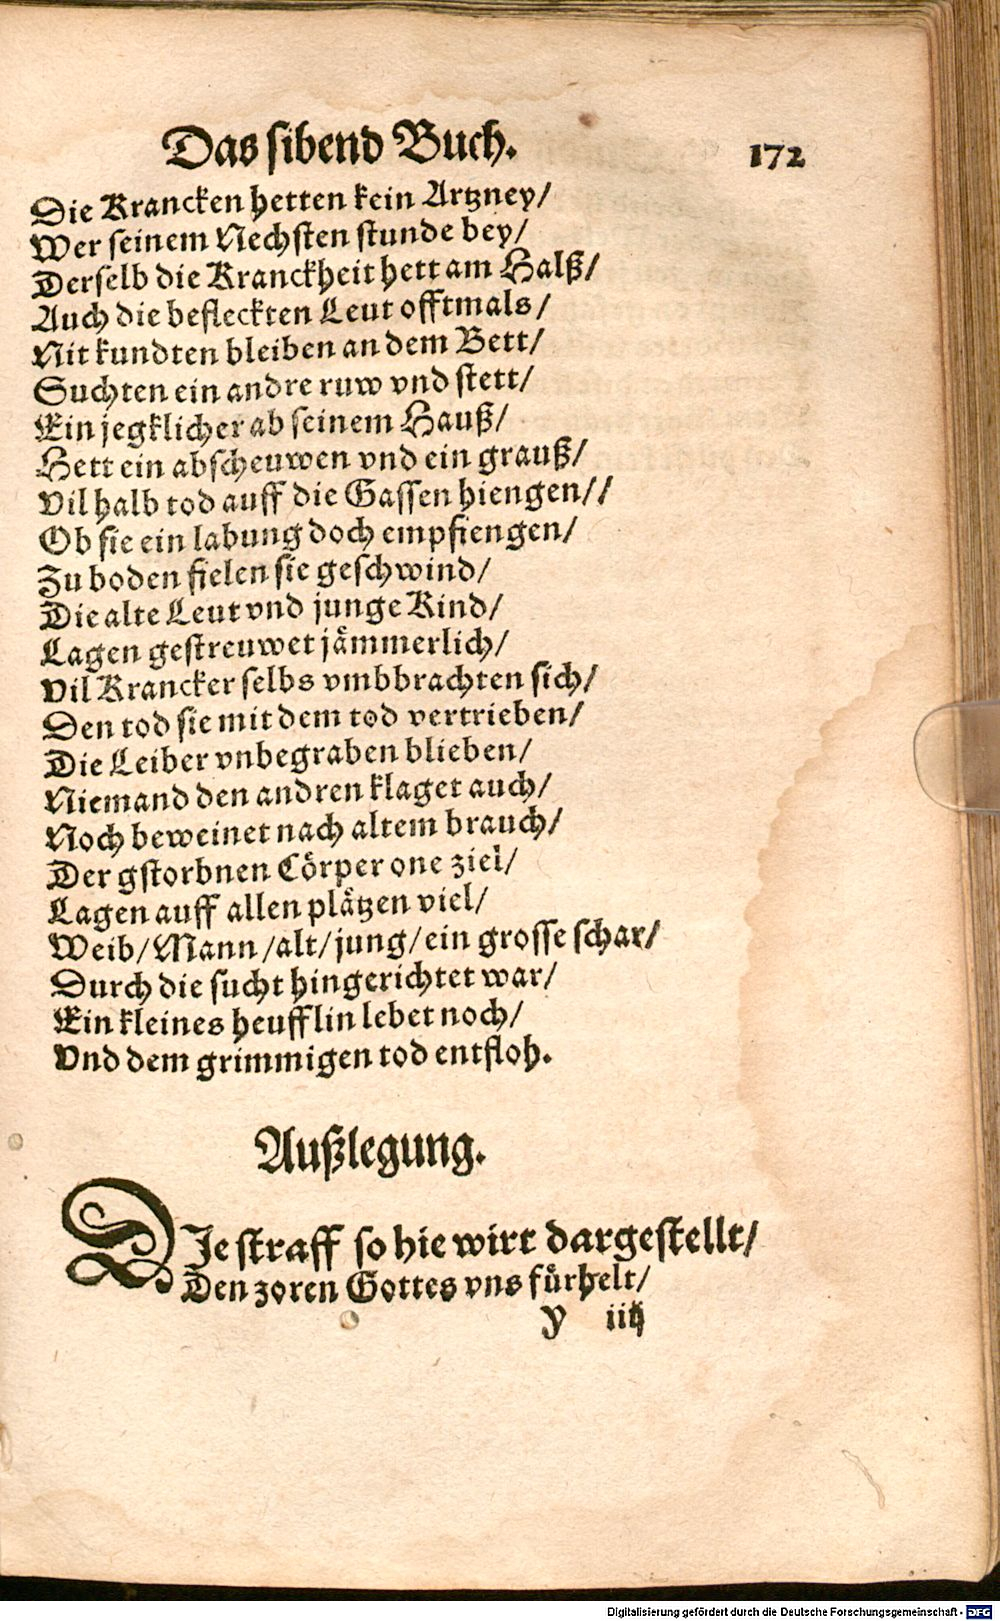 Das sibend Buch. 172
Die Krancken hetten kein Artzney/
Wer seinem Nechsten stunde bey/
Derselb die Kranckheit hett am Halß/
Auch die befleckten Leut offtmals/
Nit kundten bleiben an dem Bett/
Suchten ein andre ruw vnd stett/
Ein jegklicher ab seinem Hauß/
Hett ein abscheuwen vnd ein grauß/
Vil halb tod auff die Gassen hiengen//
Ob sie ein labung doch empfiengen/
Zu boden fielen sie geschwind/
Die alte Leut vnd junge Kind/
Lagen gestreuwet jämmerlich/
Vil Krancker selbs vmbbrachten sich/
Den tod sie mit dem tod vertrieben/
Die Leiber vnbegraben blieben/
Niemand den andren klaget auch/
Noch beweinet nach altem brauch/
Der gstorbnen Cörper one ziel/
Lagen auff allen plätzen viel/
Weib/Mann/alt/jung/ein grosse schar/
Durch die sucht hingerichtet war/
Ein kleines heufflin lebet noch/
Vnd dem grimmigen tod entfloh.
Außlegung.
DIe straff so hie wirt dargestellt/
Den zoren Gottes vns fürhelt/
y iiij
Digitalisierung gefördert durch die Deutsche Forschungsgemeinschaft - DFG